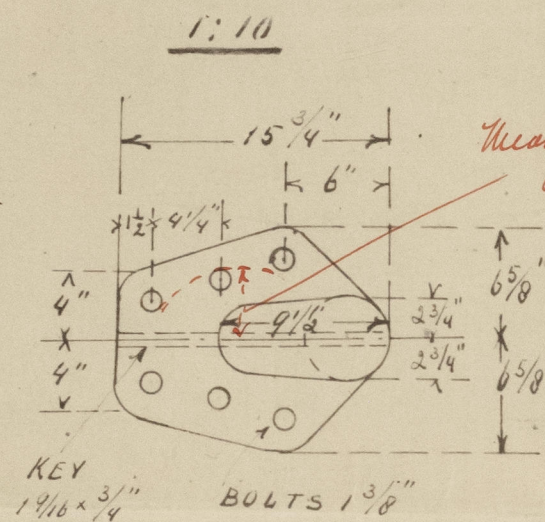 1:10
15 3/4"
6"
1 1/2 4 1/4"
4"
4"
9 1/2"
2 3/4"
2 3/4"
6 5/8"
6 5/8
KEY
1 9/16 x 3/4"
BOLTS 1 3/8"